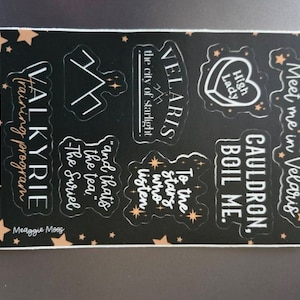 VELARIS
the city of starlight
High
Lady
Meet me in Velaris
VALKYRIE
training program
"and that's
the tea"
-The Suriel
To the
stars
who
listen
CAULDRON,
BOIL ME.
Meaggie Moos